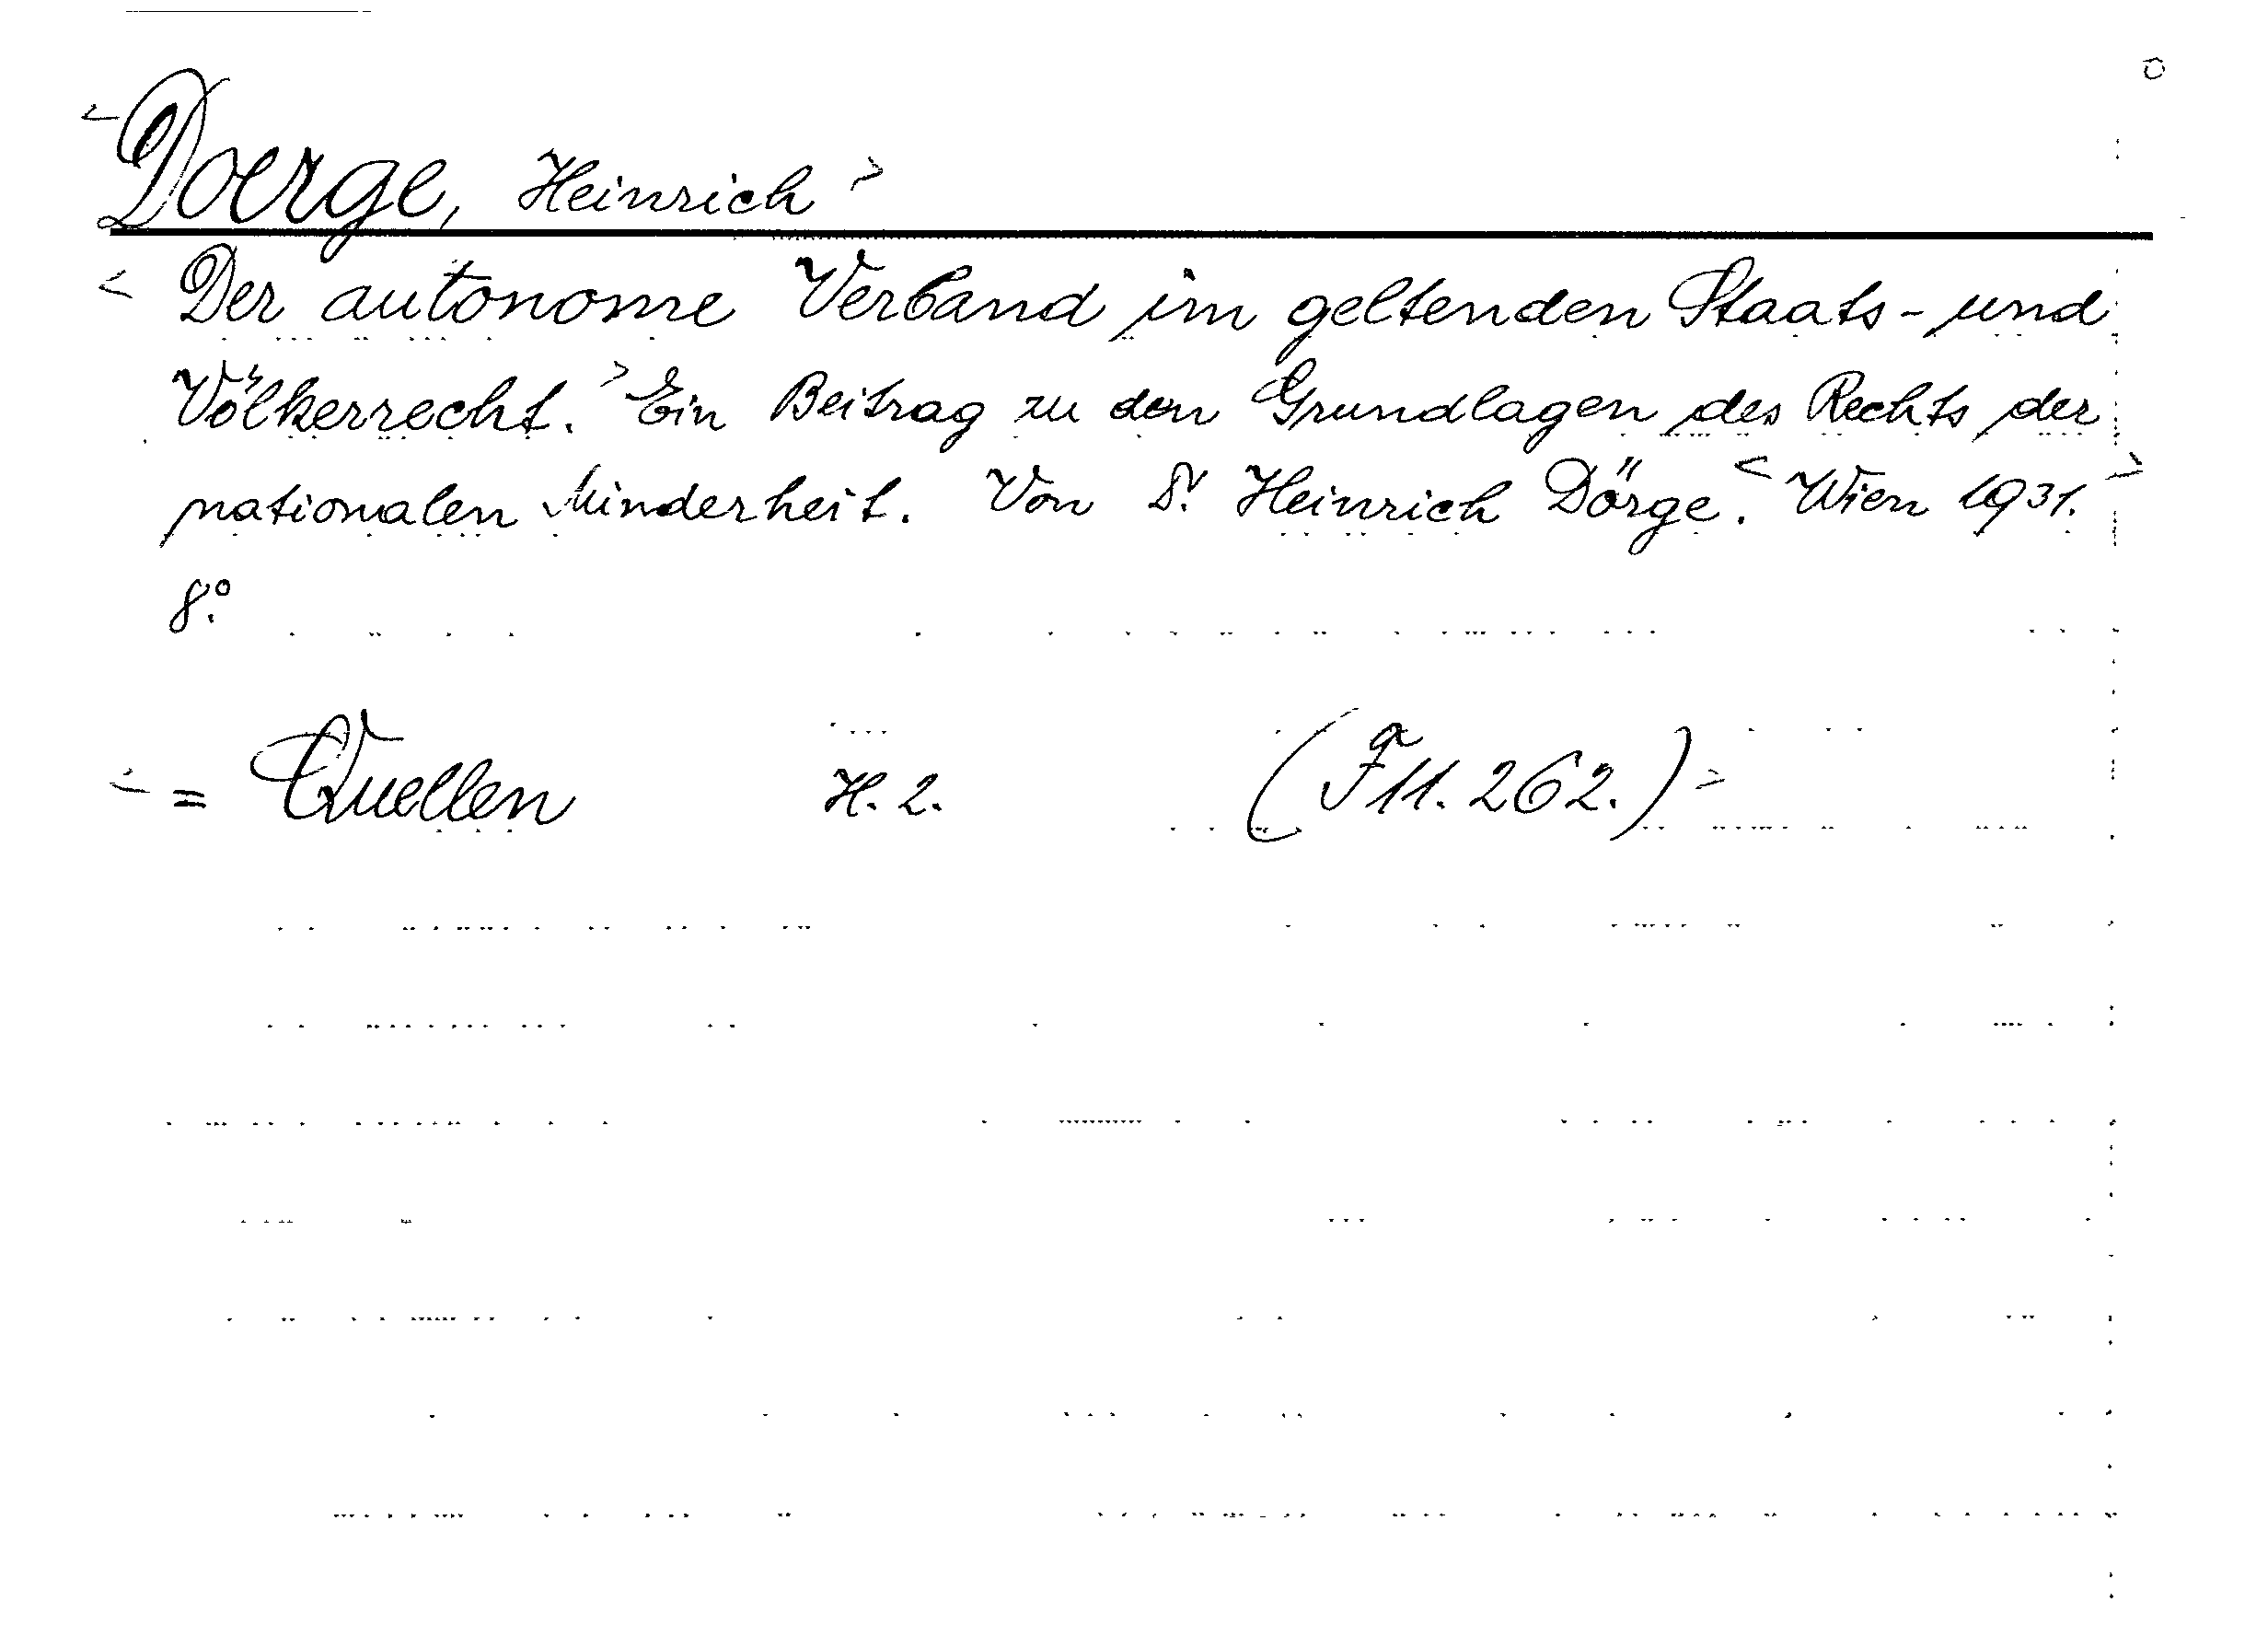 <Doerge, Heinrich>
<Der autonome Verband im geltenden Staats- und
Völkerrecht.> Ein Beitrag zu den Grundlagen des Rechts der
nationalen Minderheit. Von Dr. Heinrich Dörge. <Wien 1931.>
8.°
<= Quellen H. 2. (F a 11. 262.)>